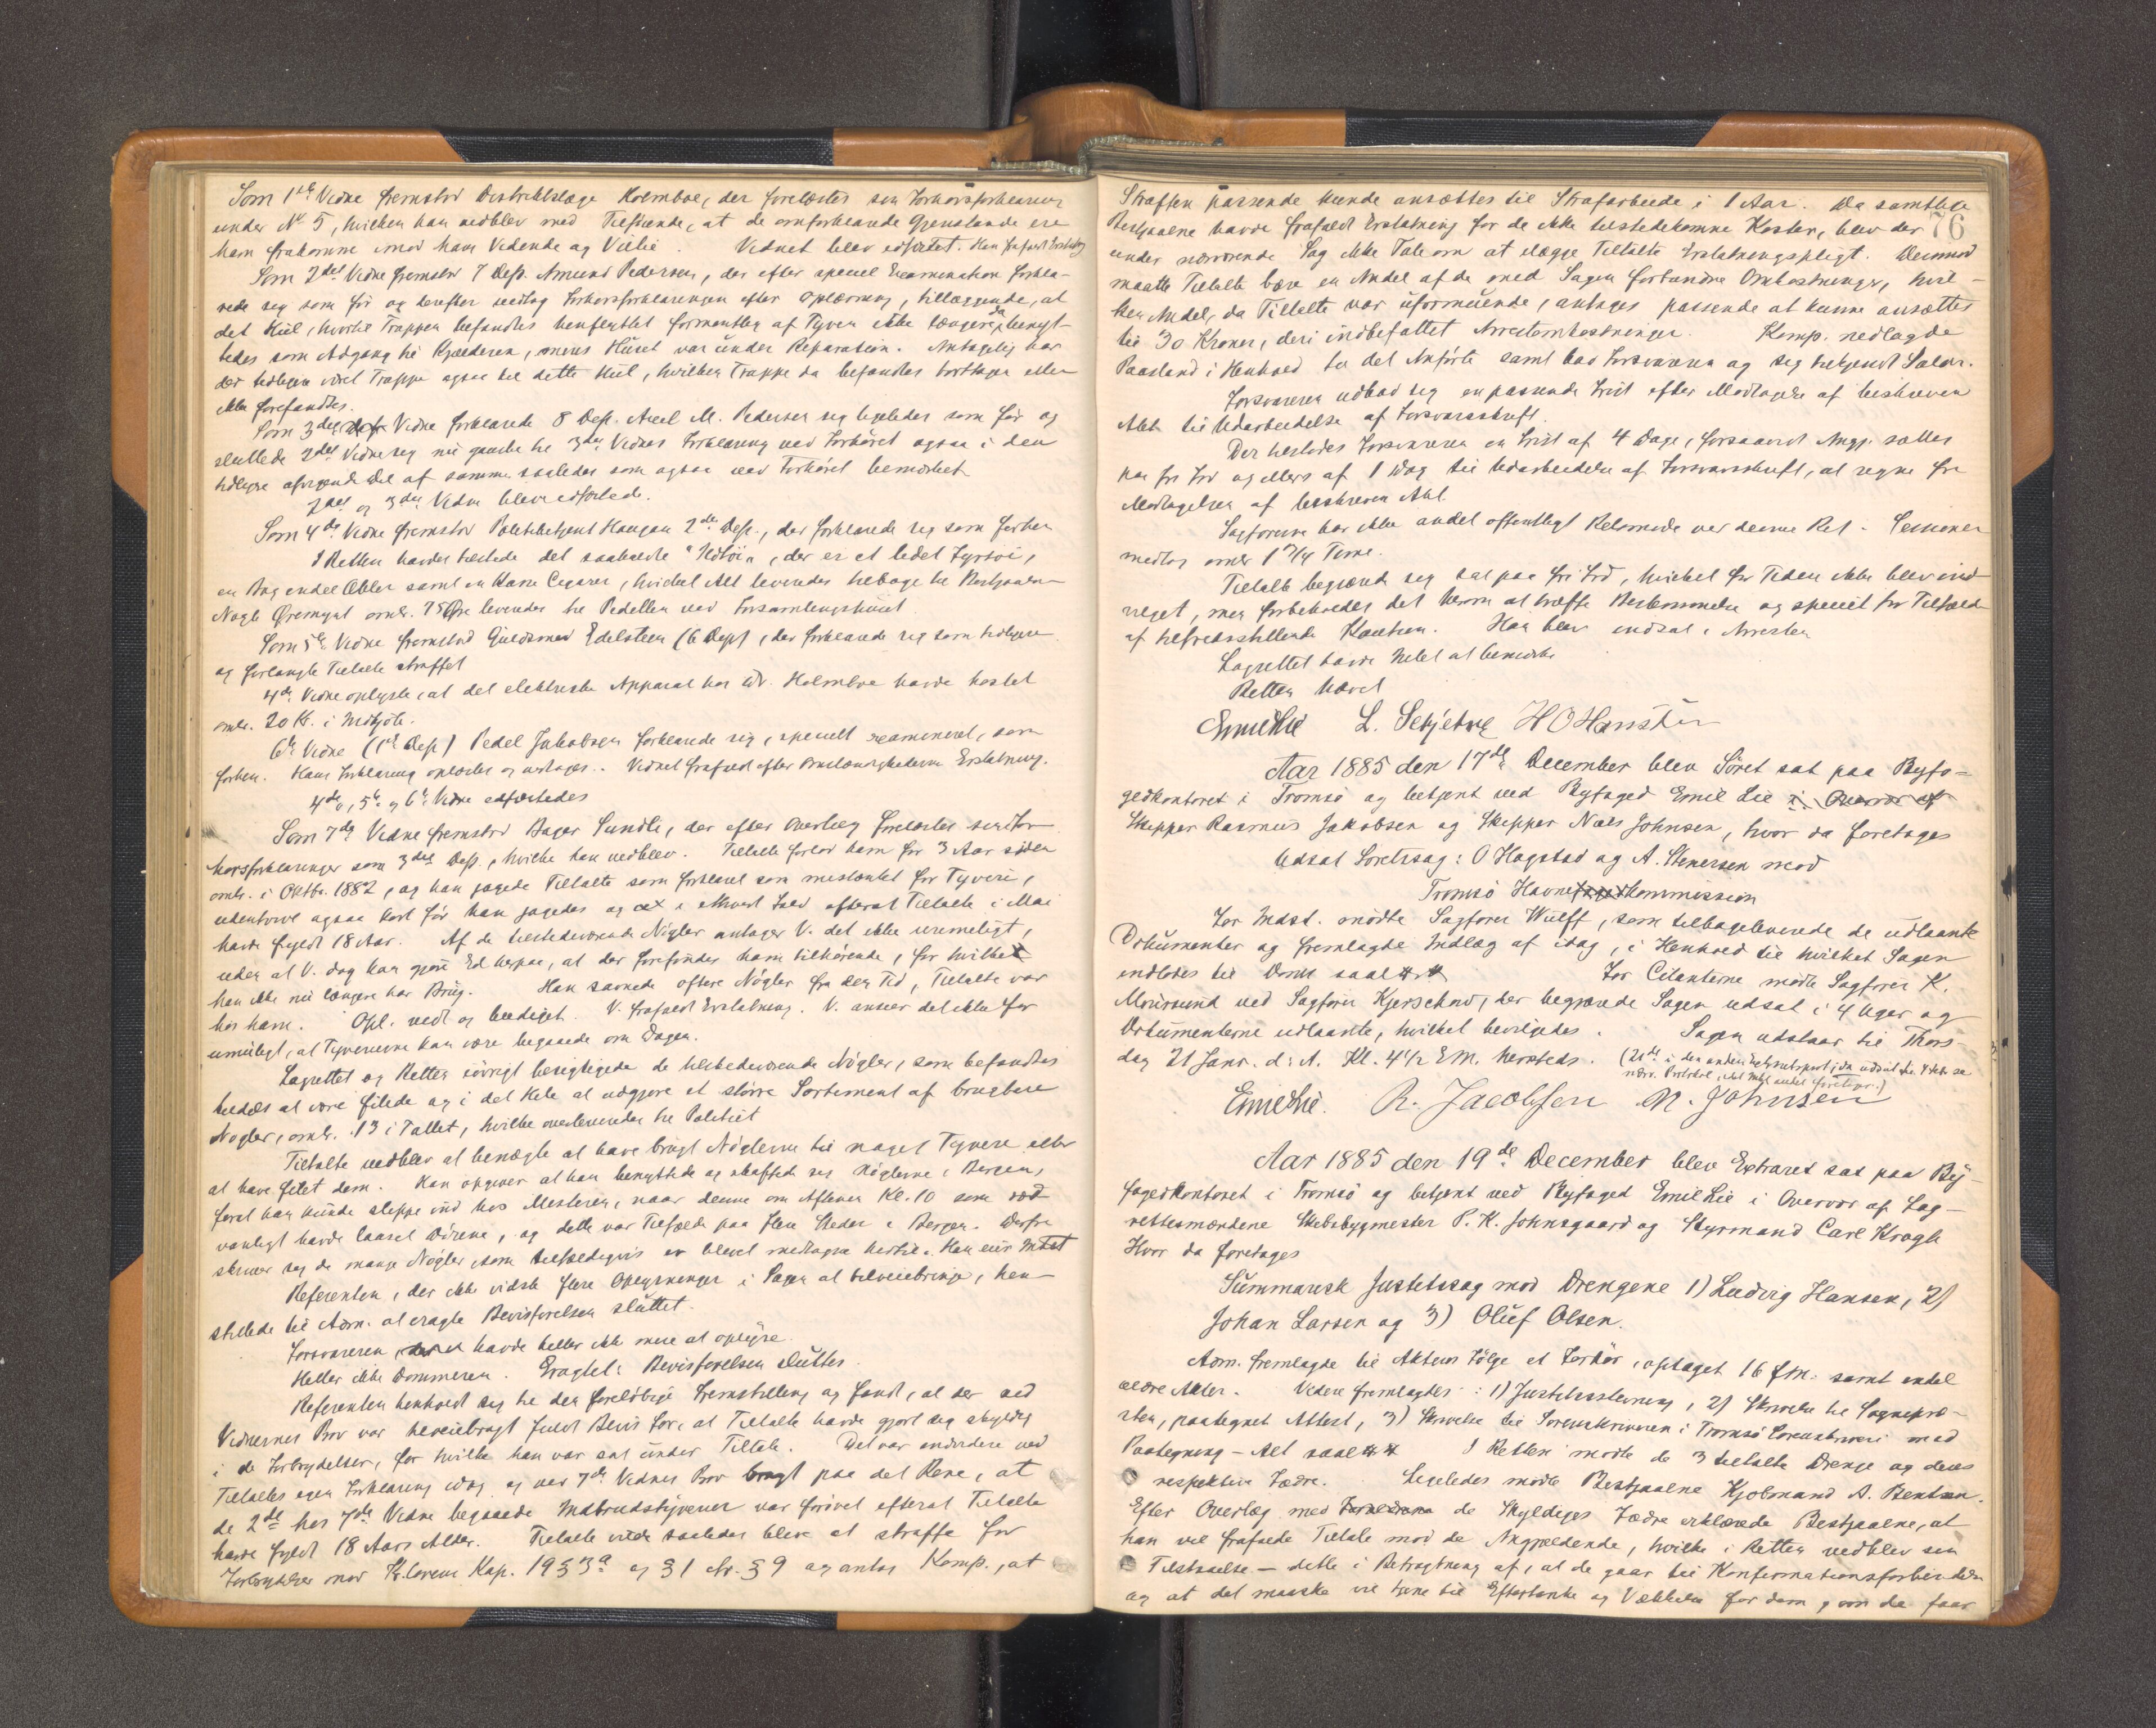 Som 1ste Vidne fremstod Distriktslæge Holmboe, der forelæstes sin Forhørsforklaring
under No 5, hvilken han vedblev med Tilføiende, at de omforklarede Gjenstande ere
ham frakomne imod hans Vidende og Villie. Vidnet blev edfæstet. Han frafaldt Erstatning
Som 2det Vidne fremstod 7 Dep. Amund Pedersen, der efter speciel Examination forkla-
rede sig som før og derefter vedtog Forhørsforklaringen efter Oplæsning, tillæggende, at
det Hul, hvortil Trappen befandtes henflyttet formentlig af Tyven ikke længere da benyt-
tedes som Adgang til Kjælderen, mens Huset var under Reparation. Antagelig har
der tidligere været Trappe ogsaa til dette Hul, hvilken Trappe da befandtes borttagen eller
ikke forefandtes.
Som 3die Vidne forklarede 8 Dep. Axel M. Pedersen sig ligeledes som før og
sluttede 2det Vidne sig nu ganske til 3die Vidnes Forklaring ved Forhøret ogsaa i den
tidligere afvigende Del af samme saaledes som ogsaa ved Forhøret bemærket
2det og 3die Vidne bleve edfæstede.
Som 4de Vidne fremstod Politibetjent Haugan 2den Dep., der forklarede sig som forhen
I Retten havdes tilstede det saakaldte "Ildtøi", der er et lidet Fyrtøi,
en Bag endel Æbler samt en Kasse Cigarer, hvilket Alt leveredes tilbage til Bestjaalne
Nogle Øremynt omtr. 75 Øre leveredes til Pedellen ved Forsamlingshuset
Som 5te Vidne fremstod Guldsmed Edelsteen (6 Dep) der forklarede sig som tidligere
og forlangte Tiltalte straffet
4de Vidne oplyste, at det elektriske Apparat hos Dr. Holmboe havde kostet
omtr. 20 Kr. i Indkjøb.
6te Vidne (1ste Dep) Pedel Jakobsen forklarede sig, specielt examineret, som
forhen. Hans Forklaring oplæstes og vedtoges. Vidnet frafaldt efter Omstændighederne Erstatning.
4de, 5te og 6te Vidne edfæstedes
Som 7de Vidne fremstod Bager Sundli, der efter Overlæg forelæstes sin For-
hørsforklaringer som 3die Dep., hvilke han vedblev. Tiltalte forlod ham for 3 Aar siden
omtr. i Oktbr. 1882, og han jagede Tiltalte som forklaret som mistænkt for Tyveri,
udentvivl ogsaa kort før han jagedes og i ethvert Fald efterat Tiltalte i Mai
havde fyldt 18 Aar. Af de tilstedeværende Nøgler antager V. det ikke urimeligt,
uden at V. dog kan gjøre Ed herpaa, at der forefindes ham tilhørende, for hvilke
han ikke nu længere har Brug. Han savnede oftere Nøgler fra den Tid, Tiltalte var
hos ham. Opl. vedt og beediget. V. frafaldt Erstatning. V. anser det ikke for
umuligt, at Tyverierne kan være begaaede om Dagen.
Lagrettet og Retten iøvrigt besigtigede de tilstedeværende Nøgler, som befandtes
tildels at være filede og i det Hele at udgjøre et større Sortiment af brugbare
Nøgler, omtr. 13 i Tallet, hvilke overleveredes til Politiet
Tiltalte vedblev at benægte at have brugt Nøglerne til noget Tyveri eller
at have filet dem. Han opgiver at han benyttede og skaffede sig Nøglerne i Bergen,
forat han kunde slippe ind hos Mesteren, naar denne om Aftenen Kl. 10 som
vanligt havde laaset Dørene, og dette var Tilfælde paa flere Steder i Bergen. Derfra
skriver sig de mange Nøgler, som tilfældigvis er blevet medtagne hertil. Han eier Intet
Referenten, der ikke vidste flere Oplysninger i Sagen at tilveiebringe, hen-
stillede til Adm. at eragte Bevisførelsen sluttet.
Forsvareren havde heller ikke mere at oplyse.
Heller ikke Dommeren. Eragtet: Bevisførelsen sluttes.
Referenten henholdt sig til den foreløbige Fremstilling og fandt, at der ved
Vidnernes Prov var tilveiebragt fuldt Bevis for, at Tiltalte havde gjort sig skyldig
i de Forbrydelser, for hvilke han var sat under Tiltale. Det var endvidere ved
Tiltaltes egen Forklaring idag og ved 7de Vidnes Prov bragt paa det Rene, at
de 2de hos 7de Vidne begaaede Indbrudstyverier var forøvet efterat Tiltalte
havde fyldt 18 Aars Alder. Tiltalte vilde saaledes blive at straffe for
Forbrydelser mod Kr.loven Kap. 19 § 3 a og § 1 cfr. § 9 og antog Komp., at
76
Straffen passende kunde ansættes til Strafarbeide i 1 Aar. Da samtlige
Bestjaalne havde frafaldt Erstatning for de ikke tilstedekomne Koster, blev der
under nærværende Sag ikke Tale om at ilægge Tiltalte Erstatningspligt. Derimod
maatte Tiltalte bære en Andel af de med Sagen forbundne Omkostninger, hvil-
ken Andel, da Tiltalte var uformuende, antages passende at kunne ansættes
til 30 Kroner, deri indbefattet Arrestomkostninger. Komp. nedlagde
Paastand i Henhold til det Anførte samt bad Forsvareren og sig tilkjendt Salær.
Forsvareren udbad sig en passende Frist efter Modtagelse af beskreven
Akt til Udarbeidelse af Forsvarsskrift.
Der tilstodes Forsvareren en Frist af 4 Dage, forsaavidt Angj. sættes
paa fri Fod og ellers af 1 Dag til Udarbeidelse af Forsvarsskrift, at regne fra
Modtagelsen af beskreven Akt.
Sagførerne har ikke andet offentligt Relsmøde ved denne Ret. Sessionen
medtog omtr 1 3/4 Time.
Tiltalte begjærede sig sat paa fri Fod, hvilket for Tiden ikke blev ind-
vilget, men forbeholdes det herom at træffe Bestemmelse og specielt for Tilfælde
af tilfredsstillende Kaution. Han blev indsat i Arresten
Lagrettet havde Intet at bemærke
Retten hævet
Emil Lie L. Sebjetvig H O Hansten
Aar 1885 den 17de December blev Søret sat paa Byfo-
gedkontoret i Tromsø og betjent ved Byfoged Emil Lie i Overvær af
Skipper Rasmus Jakobsen og Skipper Nils Johnsen, hvor da foretoges
Udsat Søretssag: O Hagstad og A. Stenersen mod
Tromsø Havnekommission
For Indst. mødte Sagfører Wulff, som tilbageleverede de udlaante
Dokumenter og fremlagde Indlæg af idag, i Henhold til hvilket Sagen
indlodes til Doms saal ** For Citanterne mødte Sagfører K.
Moursund ved Sagfører Kjerschow, der begjærede Sagen udsat i 4 Uger og
Dokumenterne udlaante, hvilket bevilgedes. Sagen udstaar til Thors-
dag 21 Janr. d: A. Kl. 4 1/2 E M. hersteds.
Emil Lie. R. Jacobsen N. Johnsen
Aar 1885 den 19de December blev Extraret sat paa By-
fogedkontoret i Tromsø og betjent ved Byfoged Emil Lie i Overvær af Lag-
rettesmændene Skibsbygmester P. K. Johnsgaard og Styrmand Carl Krogh
Hvor da foretoges
Summarisk Justitssag mod Drengene 1) Ludvig Hansen, 2)
Johan Larsen og 3) Oluf Olsen.
Adm. fremlagde til Aktens Følge et Forhør, optaget 16 f M. samt endel
ældre Akter. Videre fremlagdes: 1) Justitsstevning, 2) Skrivelse til Sognepræ-
sten, paategnet Attest, 3) Skrivelse til Sorenskriveren i Tromsø Sorenskriveri med
Paategning – Alt saal ** I Retten mødte de 3 tiltalte Drenge og deres
respektive Fædre. Ligeledes mødte Bestjaalne Kjøbmand A. Bentzen.
Efter Overlæg med de Skyldiges Fædre erklærede Bestjaalne, at
han vil frafalde Tiltale mod de Angjældende, hvilke i Retten vedblev sin
Tilstaaelse – dette i Betragtning af, at de gaar til Konfirmationsforberedelse
og at det maaske vil tjene til Eftertanke og Vækkelse for dem, om de faar